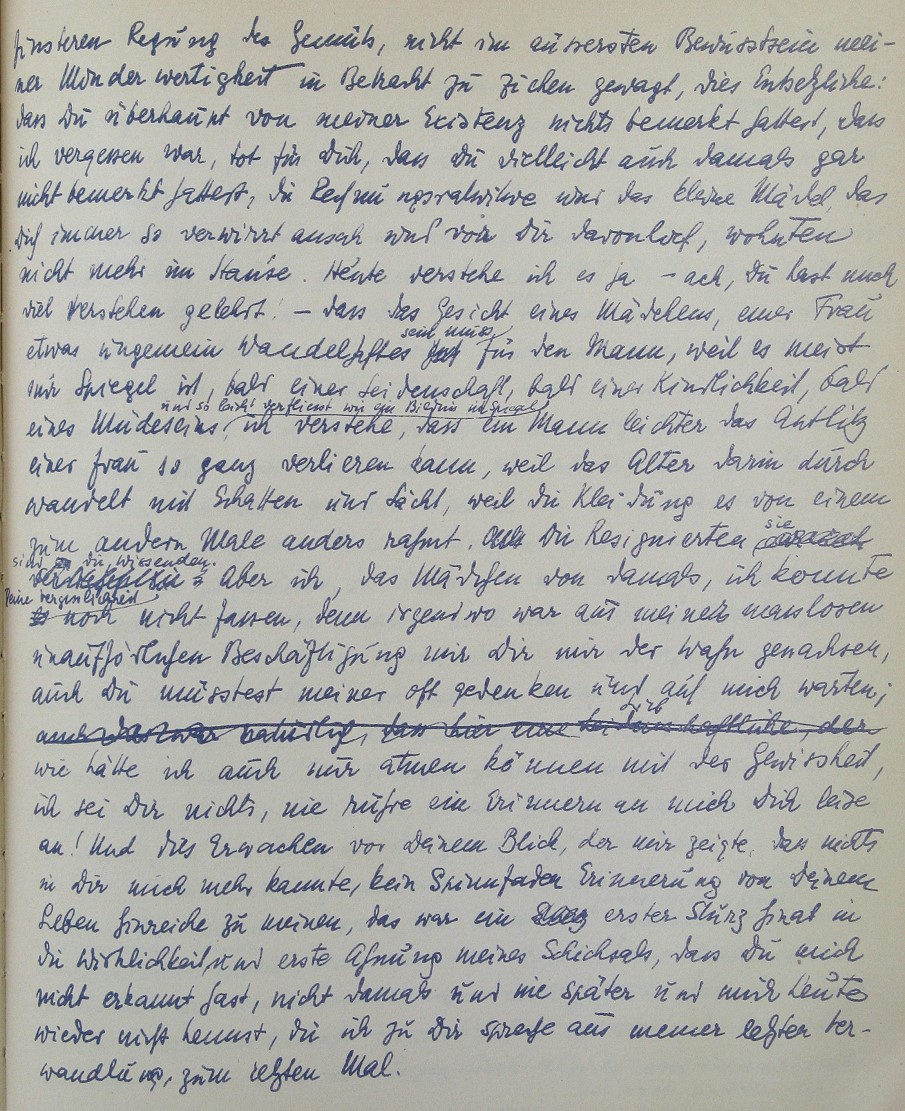 finsteren Regung des Gemüts, nicht im äussersten Bewusstsein mei-
ner Minderwertigkeit in Betracht zu ziehen gewagt, dies Entsetzliche:
dass Du überhaupt von meiner Existenz nichts bemerkt hattest, dass
ich vergessen war, tot für Dich, dass Du vielleicht auch damals gar
nicht bemerkt hattest, die Rechnungsratwitwe und das kleine Mädel, das
Dich immer so verwirrt ansah und vor Dir davonlief, wohnten
nicht mehr im Hause. Heute verstehe ich es ja – ach, Du hast mich
viel verstehen gelehrt! – dass das Gesicht eines Mädchens, einer Frau
sein muss
etwas ungemein Wandelhaftes für den Mann, weil es meist
nur Spiegel ist, bald einer Leidenschaft, bald einer Kindlichkeit, bald
und so leicht verfliesst wie ein Bildnis im Spiegel
eines Müdeseins, ich verstehe, dass ein Mann leichter das Antlitz
einer Frau so ganz verlieren kann, weil das Alter darin durch
wandelt mit Schatten und Licht, weil die Kleidung es von einem
zum andern Male anders rahmt. Die Resignierten
sie
sind die wissenden.
Aber ich, das Mädchen von damals, ich konnte
Deine Vergesslichkeit
noch nicht fassen, denn irgendwo war aus meiner masslosen
unaufhörlichen Beschäftigung mir Dir mir der Wahn gewachsen,
auch Du müsstest meiner oft gedenken und auf mich warten;
auch das war natürlich, dass hier eine leidenschaftliche, der
wie hätte ich auch nur atmen können mit der Gewissheit,
ich sei Dir nichts, nie rühre ein Erinnern an mich Dich leise
an! Und dies Erwachen vor Deinem Blick, der mir zeigte, dass nichts
in Dir mich mehr kannte, kein Spinnfaden Erinnerung von Deinem
Leben hinreiche zu meinem, das war ein erster Sturz hinab in
die Wirklichkeit, und erste Ahnung meines Schicksals, dass Du mich
nicht erkannt hast, nicht damals und nie später und mich heute
wieder nicht kennst, die ich zu Dir spreche aus meiner letzten Ver-
wandlung, zum letzten Mal.